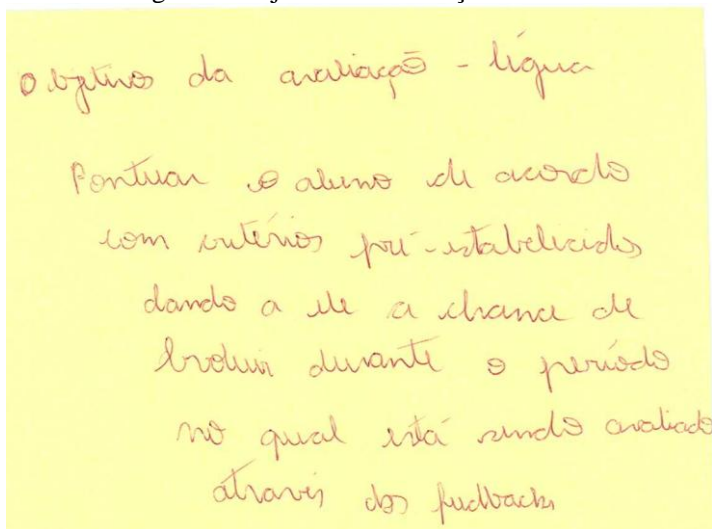 Objetivos da avaliação - língua
Pontuar o aluno de acordo
com critérios pré-estabelecidos
dando a ele a chance de
evoluir durante o período
no qual está sendo avaliado
através dos feedbacks